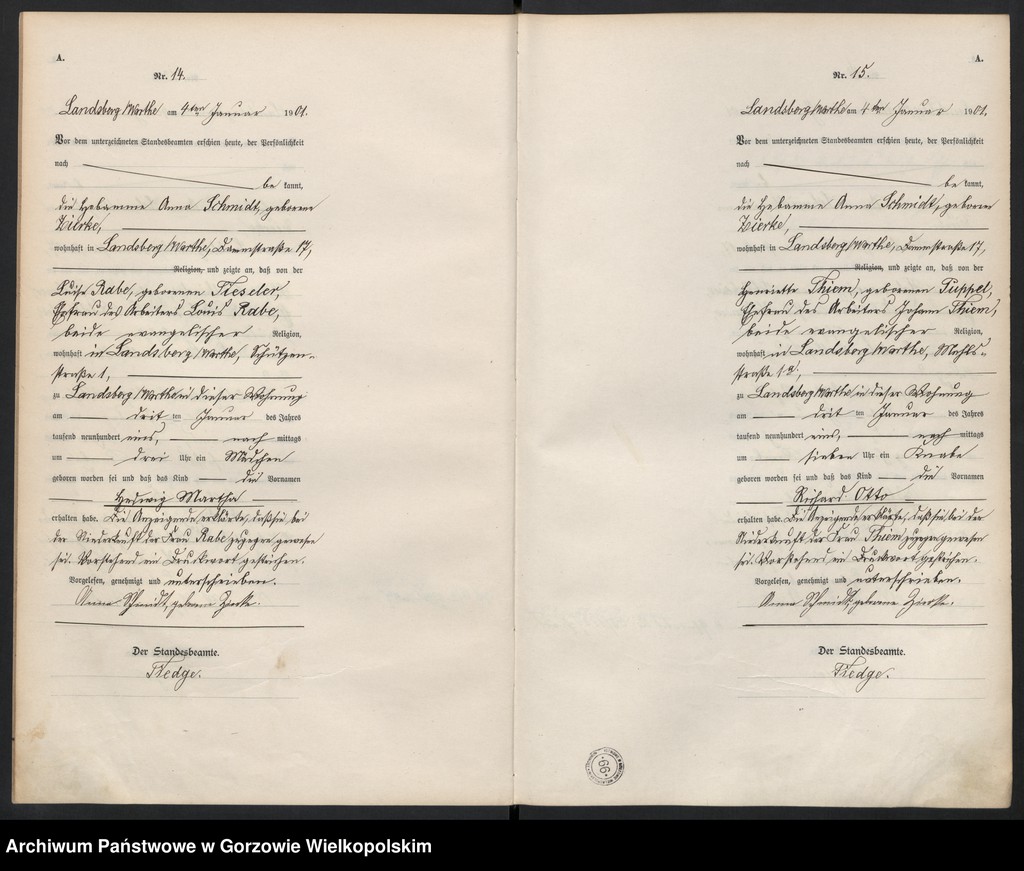 A.
Nr. 14.
Landsberg/Warthe am 4ten Januar 1901.
Vor dem unterzeichneten Standesbeamten erschien heute, der Persönlichkeit
nach
be kannt,
die Hebamme Anna Schmidt, geborene
Zierke,
wohnhaft in Landsberg/Warthe, Dammstraße 17,
Religion, und zeigte an, daß von der
Luise Rabe, geborenen Fiesdler,
Ehefrau des Arbeiters Louis Rabe,
beide evangelischer Religion,
wohnhaft in Landsberg/Warthe, Schützen-
straße 1,
zu Landsberg/Warthe in dieser Wohnung
am drit ten Januar des Jahres
tausend neunhundert eins, nach mittags
um drei Uhr ein Mädchen
geboren worden sei und daß das Kind die Vornamen
Hedwig Martha
erhalten habe. Die Anzeigende erklärte, daß sie bei
der Niederkunft der Frau Rabe zugegen gewesen
sei. Vorstehend ein Druckwort gestrichen.
Vorgelesen, genehmigt und unterschrieben.
Anna Schmidt, geborene Zierke.
Der Standesbeamte.
Tiedge.
A.
Nr. 15.
Landsberg/Warthe am 4ten Januar 1901.
Vor dem unterzeichneten Standesbeamten erschien heute, der Persönlichkeit
nach
be kannt,
die Hebamme Anna Schmidt, geborene
Zierke,
wohnhaft in Landsberg/Warthe, Dammstraße 17,
Religion, und zeigte an, daß von der
Henriette Thiem, geborenen Püppel,
Ehefrau des Arbeiters Johann Thiem,
beide evangelischer Religion,
wohnhaft in Landsberg/Warthe, Mühl-
straße
zu Landsberg/Warthe in dieser Wohnung
am drit ten Januar des Jahres
tausend neunhundert eins, nach mittags
um sieben Uhr ein Knabe
geboren worden sei und daß das Kind die Vornamen
Richard Otto
erhalten habe. Die Anzeigende erklärte, daß sie bei der
Niederkunft der Frau Thiem zugegen gewesen
sei. Vorstehend ein Druckwort gestrichen.
Vorgelesen, genehmigt und unterschrieben.
Anna Schmidt, geborene Zierke.
Der Standesbeamte.
Tiedge.
99
Archiwum Państwowe w Gorzowie Wielkopolskim